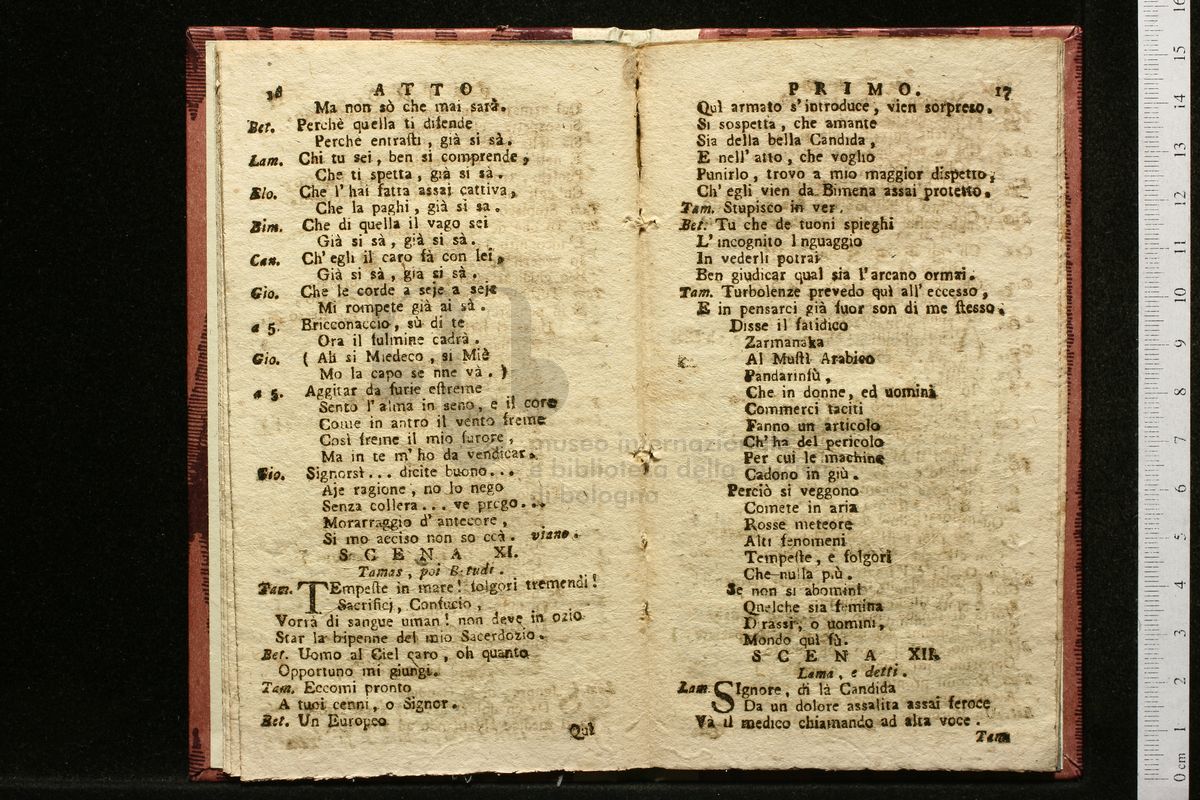 16 ATTO
Ma non sò che mai sarà.
Bet. Perchè quella ti difende
Perchè entrasti, già si sà.
Lam. Chi tu sei, ben si comprende,
Che ti spetta, già si sà.
Elo. Che l'hai fatta assai cattiva,
Che la paghi, già si sa.
Bim. Che di quella il vago sei
Già si sà, già si sà.
Can. Ch'egli il caro fà con lei,
Già si sà, già si sà.
Gio. Che le corde a seje a seje
Mi rompete già ai sà.
a 5. Bricconaccio, sù di te
Ora il fulmine cadrà.
Gio. (Ah si Miedeco, si Miè
Mo la capo se nne và.)
a 5. Aggitar da furie estreme
Sento l'alma in seno, e il core
Come in antro il vento freme
Così freme il mio furore,
Ma in te m'ho da vendicar.
Gio. Signorsì... dicite buono...
Aje ragione, no lo nego
Senza collera... ve prego...
Morarraggio d'antecore,
Si mo acciso non so ccà. viano.
SCENA XI.
Tamas, poi Betudi.
Tam. TEmpeste in mare! folgori tremendi!
Sacrificj, Confucio,
Vorrà di sangue uman! non deve in ozio
Star la bipenne del mio Sacerdozio.
Bet. Uomo al Ciel caro, oh quanto
Opportuno mi giungi.
Tam. Eccomi pronto
A tuoi cenni, o Signor.
Bet. Un Europeo
Quì
PRIMO. 17
Quì armato s'introduce, vien sorpreso.
Si sospetta, che amante
Sia della bella Candida,
E nell'atto, che voglio
Punirlo, trovo a mio maggior dispetto,
Ch'egli vien da Bimena assai protetto.
Tam. Stupisco in ver.
Bet. Tu che de tuoni spieghi
L'incognito l nguaggio
In vederli potrai
Ben giudicar qual sia l'arcano ormai.
Tam. Turbolenze prevedo quì all'eccesso,
E in pensarci già fuor son di me stesso.
Disse il fatidico
Zarmanaka
Al Muftì Arabico
Pandarinfù,
Che in donne, ed uomini
Commerci taciti
Fanno un articolo
Ch'ha del pericolo
Per cui le machine
Cadono in giù.
Perciò si veggono
Comete in aria
Rosse meteore
Alti fenomeni
Tempeste, e folgori
Che nulla più.
Se non si abomini
Qualche sia femina
D rassi, o uomini,
Mondo quì fù.
SCENA XII.
Lama, e detti.
Lam. SIgnore, di là Candida
Da un dolore assalita assai feroce
Và il medico chiamando ad alta voce.
Tam
museo internazionale
e biblioteca della musica
di bologna
0 cm 1 2 3 4 5 6 7 8 9 10 11 12 13 14 15 16